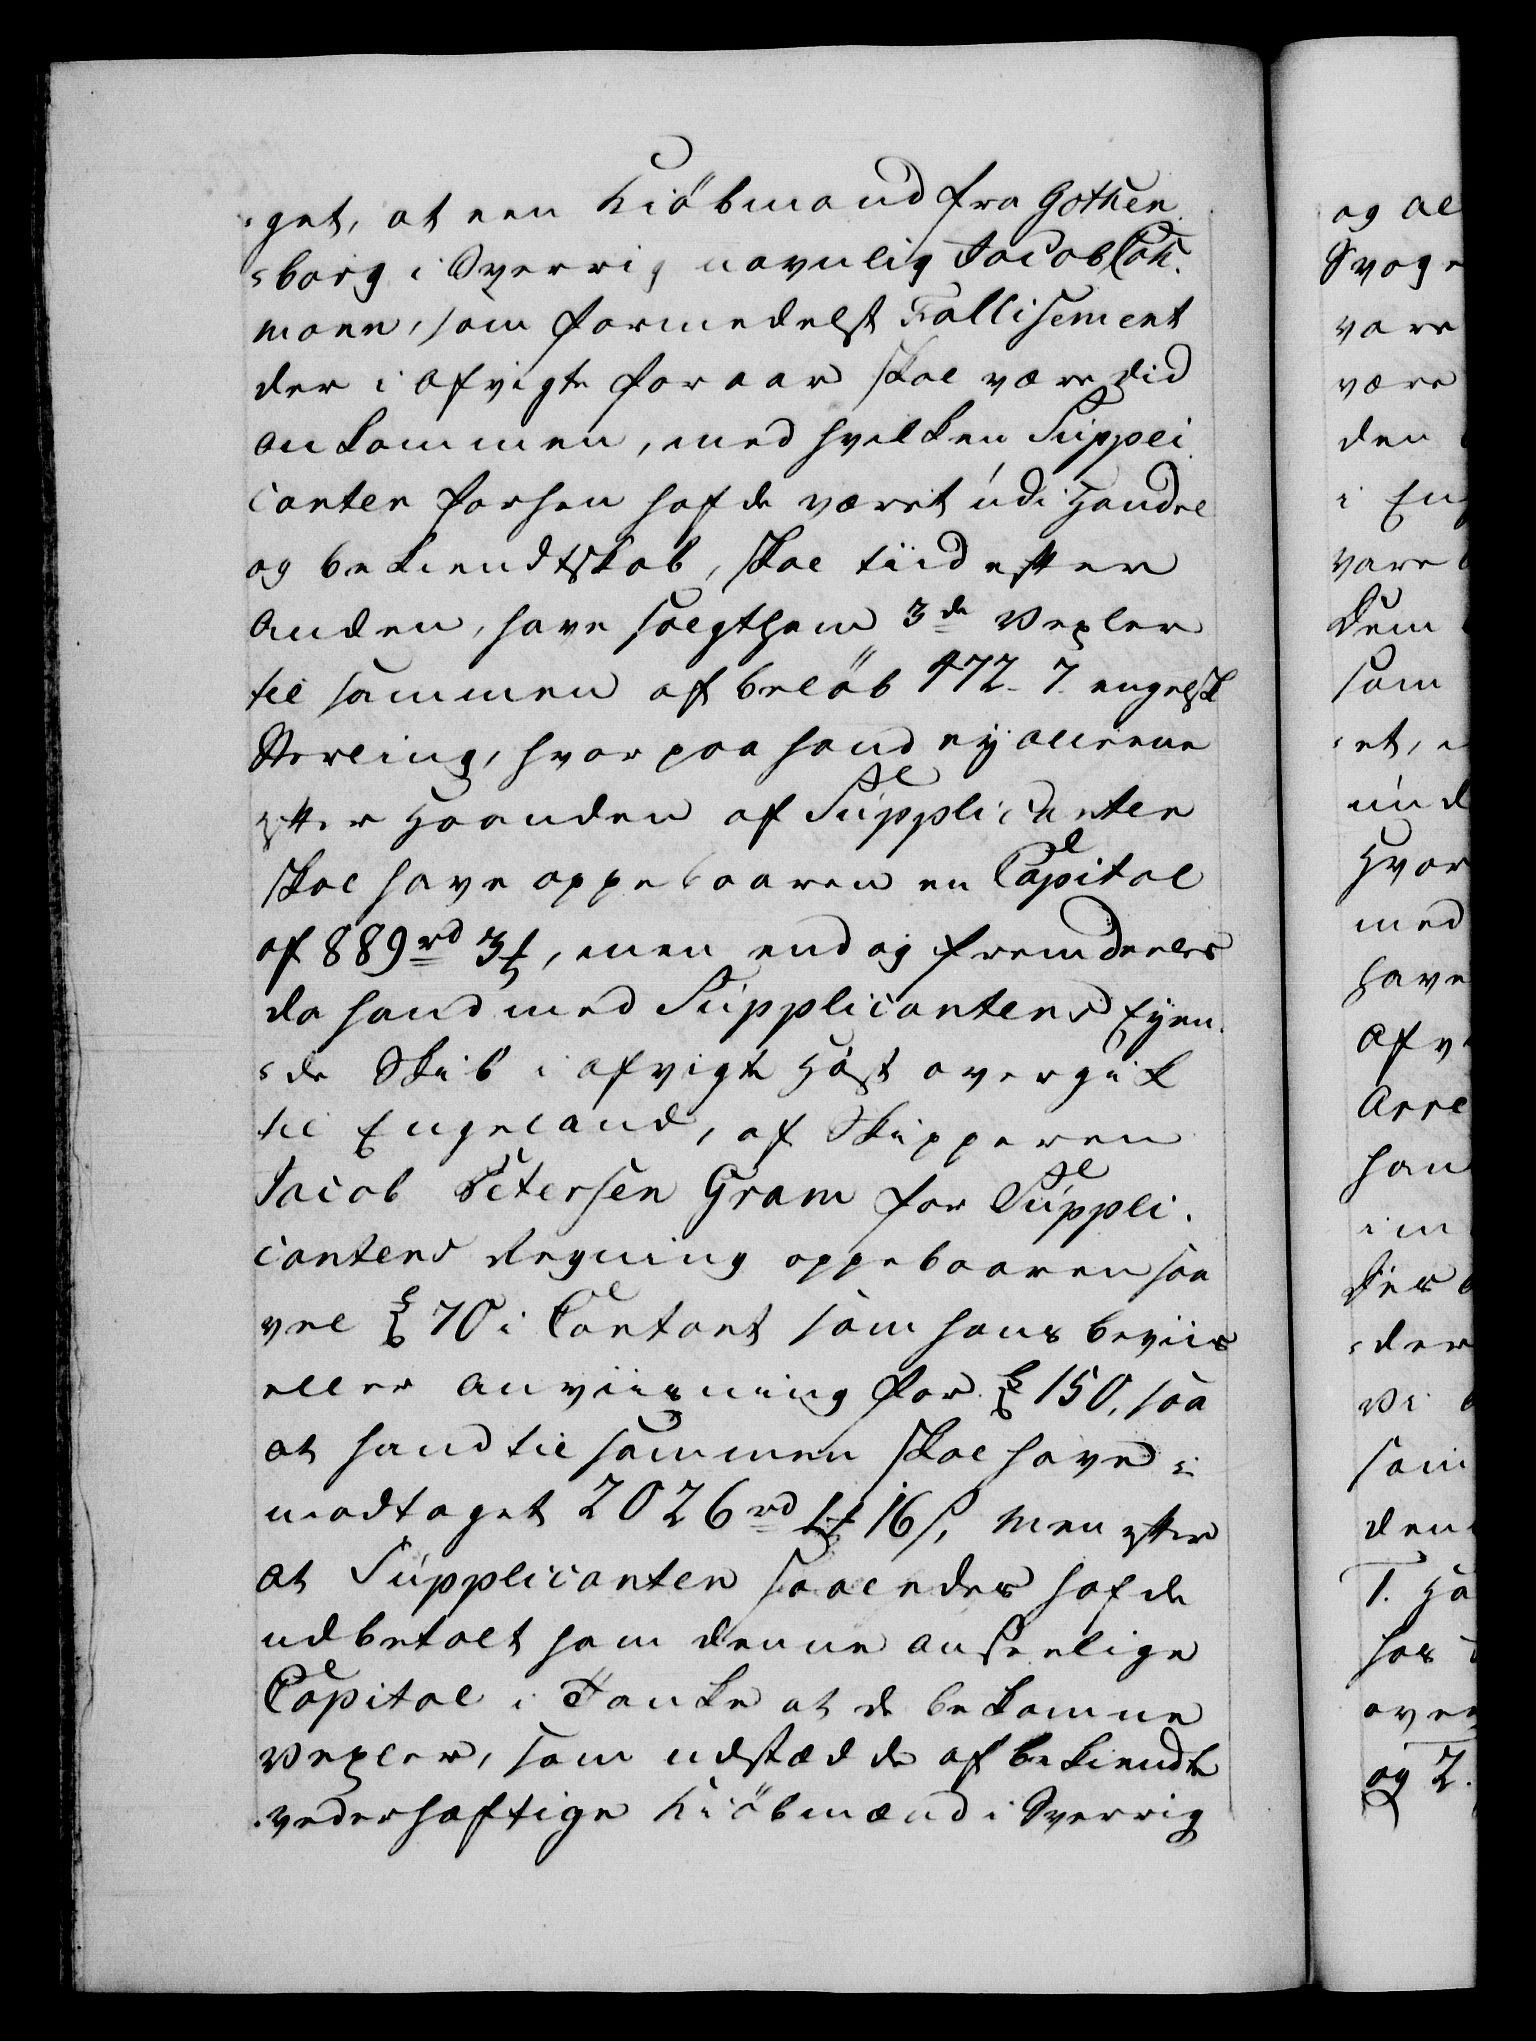 -get, at een Kiöbmand fra Gothen
-borg i Sverrig navnlig Jacob Coh.
mann, som formedelst Fallisement
der i afvigte foraar skal være did
ankommen, med hvilken Suppli
canten forhen hafde været udi Handel
og bekiendtskab, skal tiid efter
anden, have solgt ham 3de Vexler
til sammen af beløb 472. 7. engelsk
Sterling, hvor paa hand ej alleene
efter Haanden af Supplicanten
skal have oppebaaren en Capital
af 889 rd 3 ℔, men end og fremdeeles
da hand med Supplicantens Eyen.
-de Skib i afvigte Høst overgik
til Engeland, af Skipperen
Jacob Petersen Gram for Suppli.
cantens Regning oppebaaren saa
vel £ 70 i Contant som hans beviis
eller anviisning for £ 150, saa
at hand til sammen skal have i
modtaget 2026 rd 1 ℔ 16 s, men efter
at Supplicanten saaledes hafde
udbetalt ham denne anseelige
Capital i Tanke at de bekomne
Vexler, som udstædde af bekiendte
vederhæftige Kiöbmænd i Sverrig
og al
Svoge
vare
være
den
i En
vare
Dem
som
-et, 
und
Hvor
med
have
Afv
Arre
han
im
der
Vi
som
den
T. Ha
hos
over
og 2.